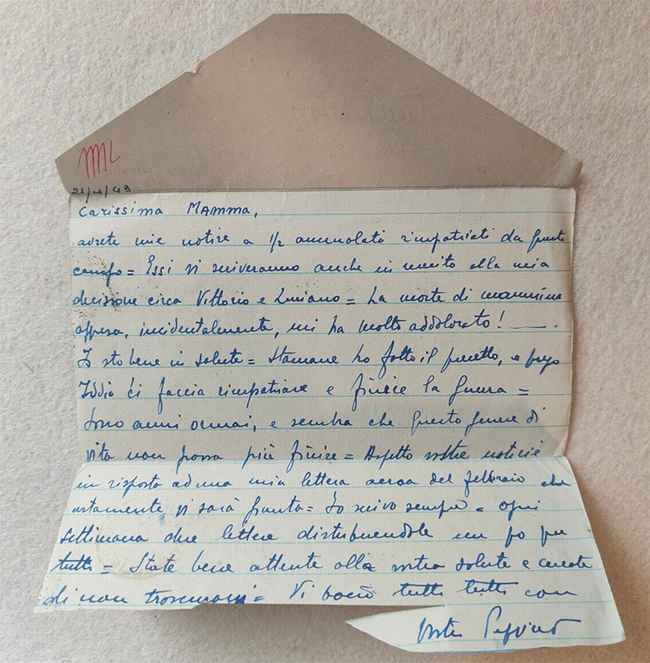 21/4/43
Carissima Mamma,
avrete mie notizie a 1/2 ammalati rimpatriati da questo
campo = Essi vi scriveranno anche in merito alla mia
decisione circa Vittorio e Luciano = La morte di mammina
appresa, incidentalmente, mi ha molto addolorato!
Io sto bene in salute = Stamane ho fatto il precetto, e prego
Iddio ci faccia rimpatriare e finire la guerra =
Sono anni ormai, e sembra che questo genere di
vita non possa più finire = Aspetto vostre notizie
in risposta ad una mia lettera aerea del febbraio che
certamente vi sarà giunta = Io scrivo sempre = ogni
settimana due lettere distribuendole un po per
tutti = State bene attente alla vostra salute e cercate
di non = Vi bacio tutti tutti con